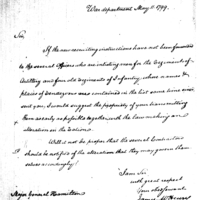 War department May 11. 1799.
Sir,
If the new recruiting instructions have not been forwarded
to the several officers who are recruiting men for the Regiments of
Artillery and four old regiments of Infantry, whose names &
places of rendezvous was contained in the list some time since
sent you, I would suggest the propriety of your transmitting
them as early as possible together with the law making an
alteration in the rations.
Will it not be proper that the several contractors
should be notified of the alteration that they may govern them
selves accordingly?
I am Sir
with great respect
your obed servant
James McHenry
Major General Hamilton